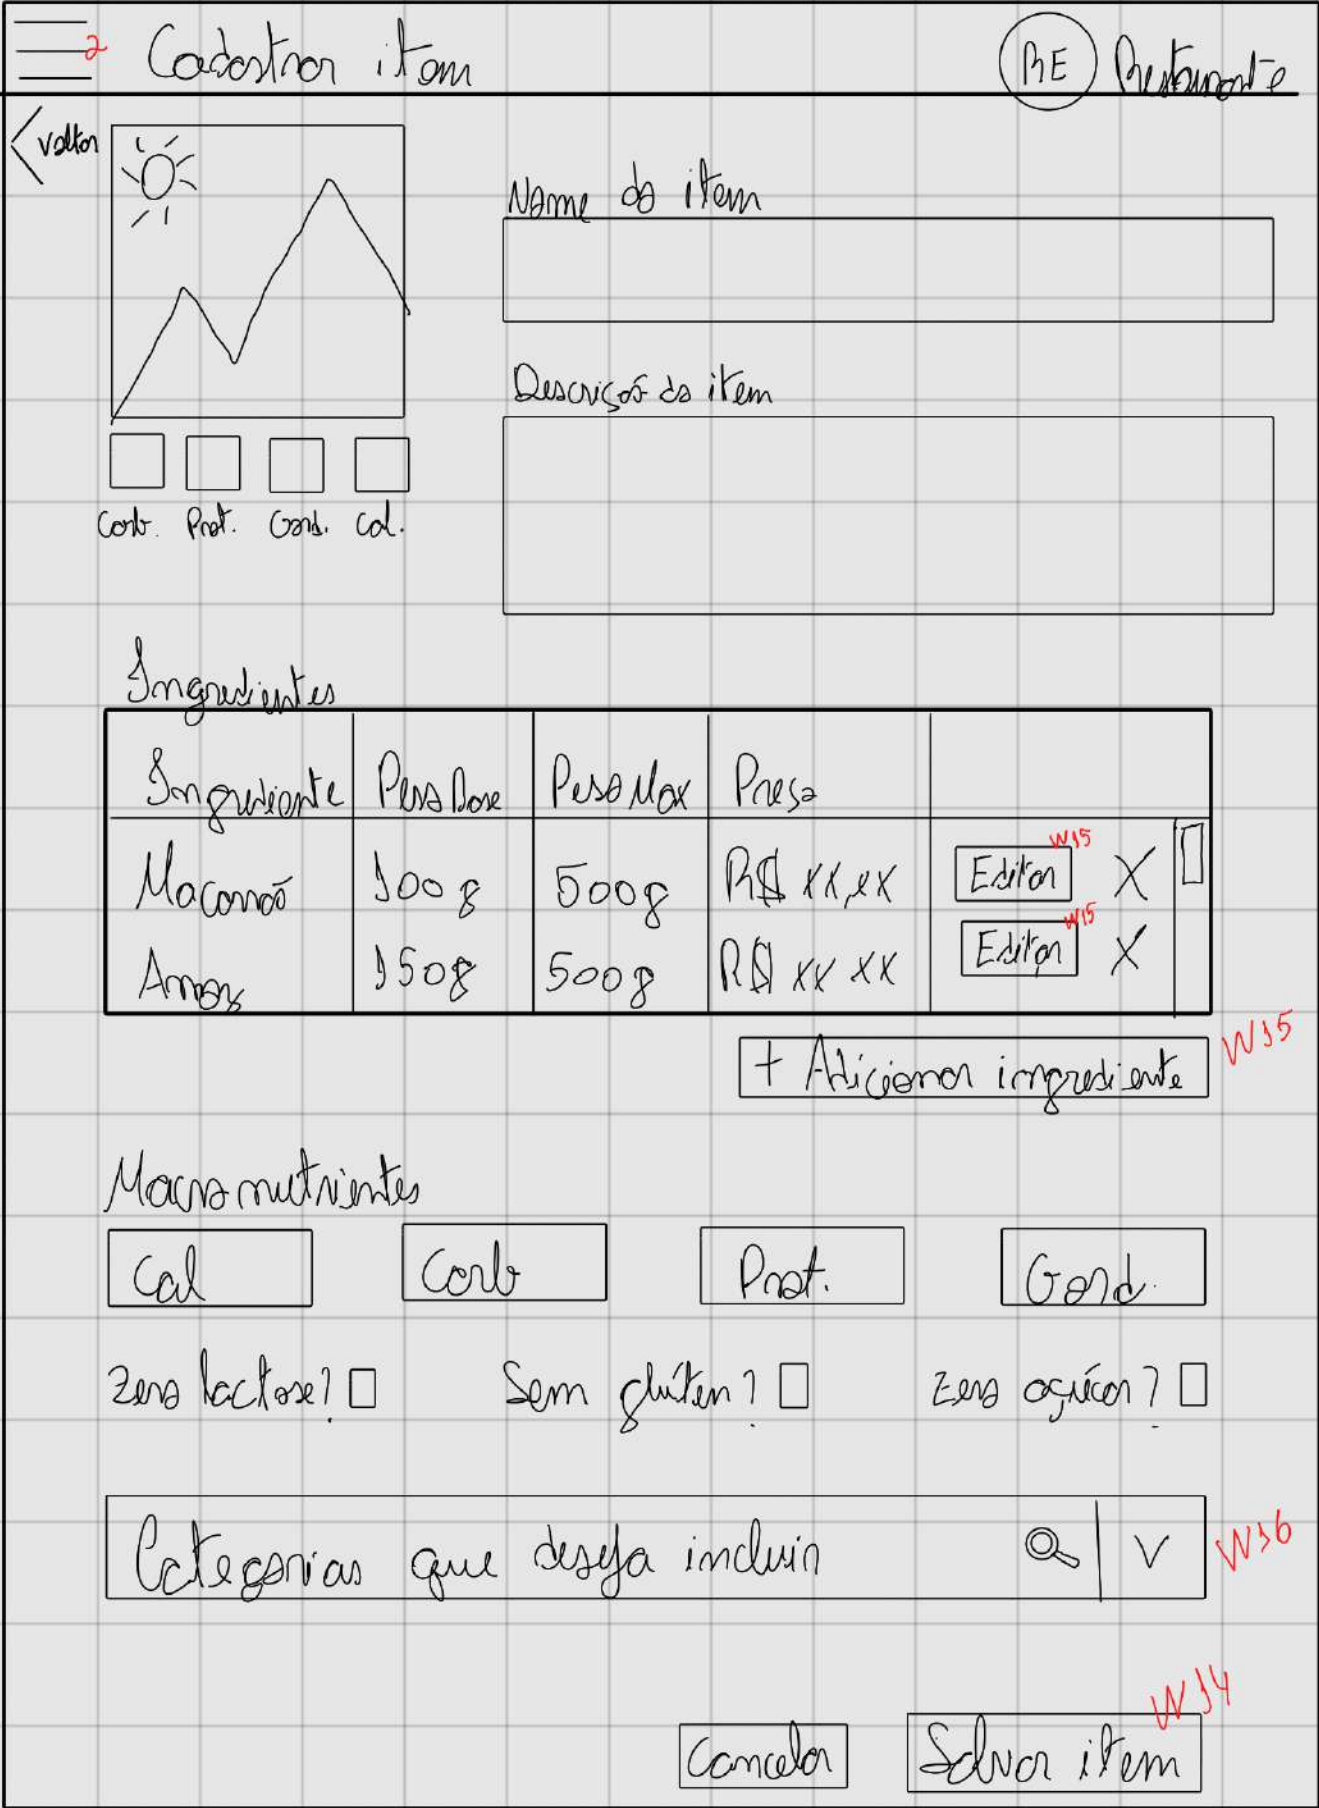 2 Cadastrar item RE Restaurante
< voltar
Nome do item
Descrição do item
Carb. Prot. Gord. Cal.
Ingredientes
Ingrediente Peso Base Peso Max Preço
Macarrão 100g 500g R$ xx,xx Editar W15 X
Arroz 150g 500g R$ xx xx Editar W15 X
+ Adicionar ingrediente W15
Macronutrientes
Cal Carb Prot. Gord.
Zero lactose? Sem glúten? Zero açúcar?
Categorias que deseja incluir V W16
Cancelar Salvar item W14